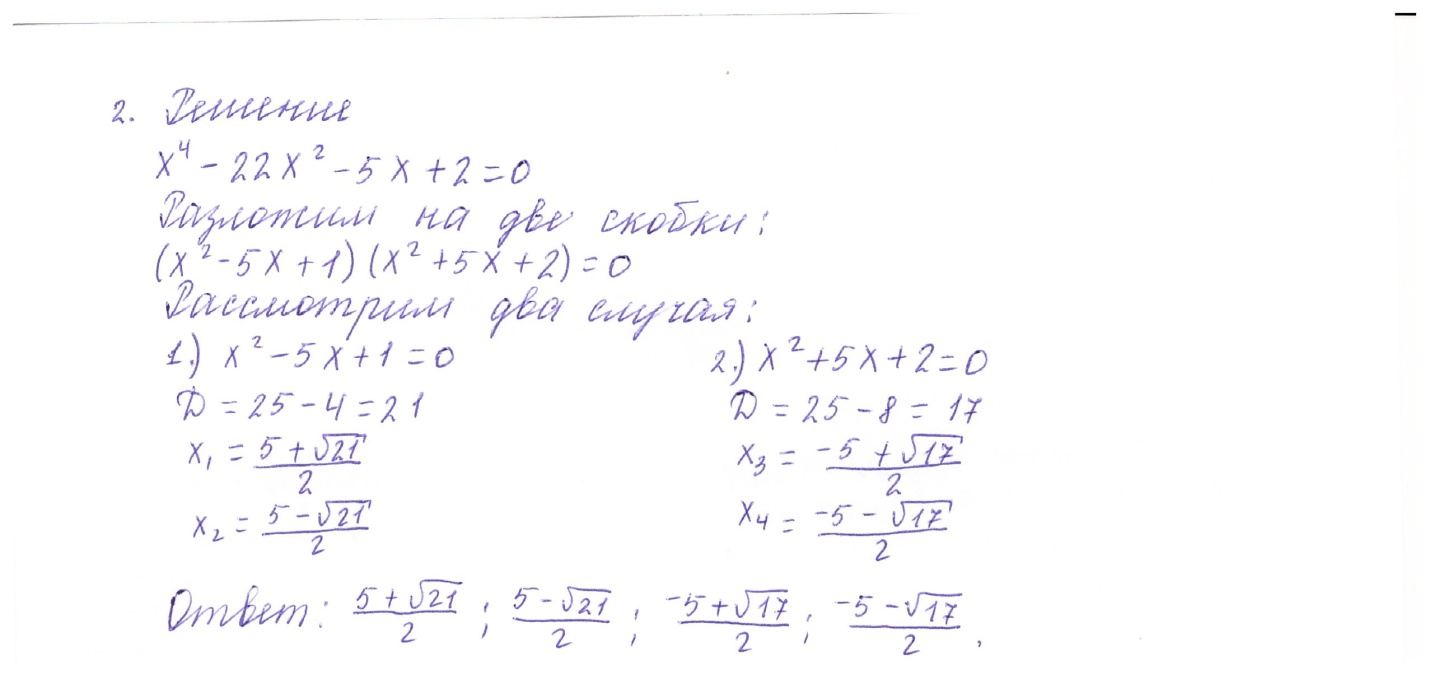 2. Решение
x⁴ - 22x² - 5x + 2 = 0
Разложим на две скобки:
(x² - 5x + 1)(x² + 5x + 2) = 0
Рассмотрим два случая:
1.) x² - 5x + 1 = 0
D = 25 - 4 = 21
x₁ = (5 + √21)/2
x₂ = (5 - √21)/2
2.) x² + 5x + 2 = 0
D = 25 - 8 = 17
x₃ = (-5 + √17)/2
x₄ = (-5 - √17)/2
Ответ: (5 + √21)/2 ; (5 - √21)/2 ; (-5 + √17)/2 ; (-5 - √17)/2 .